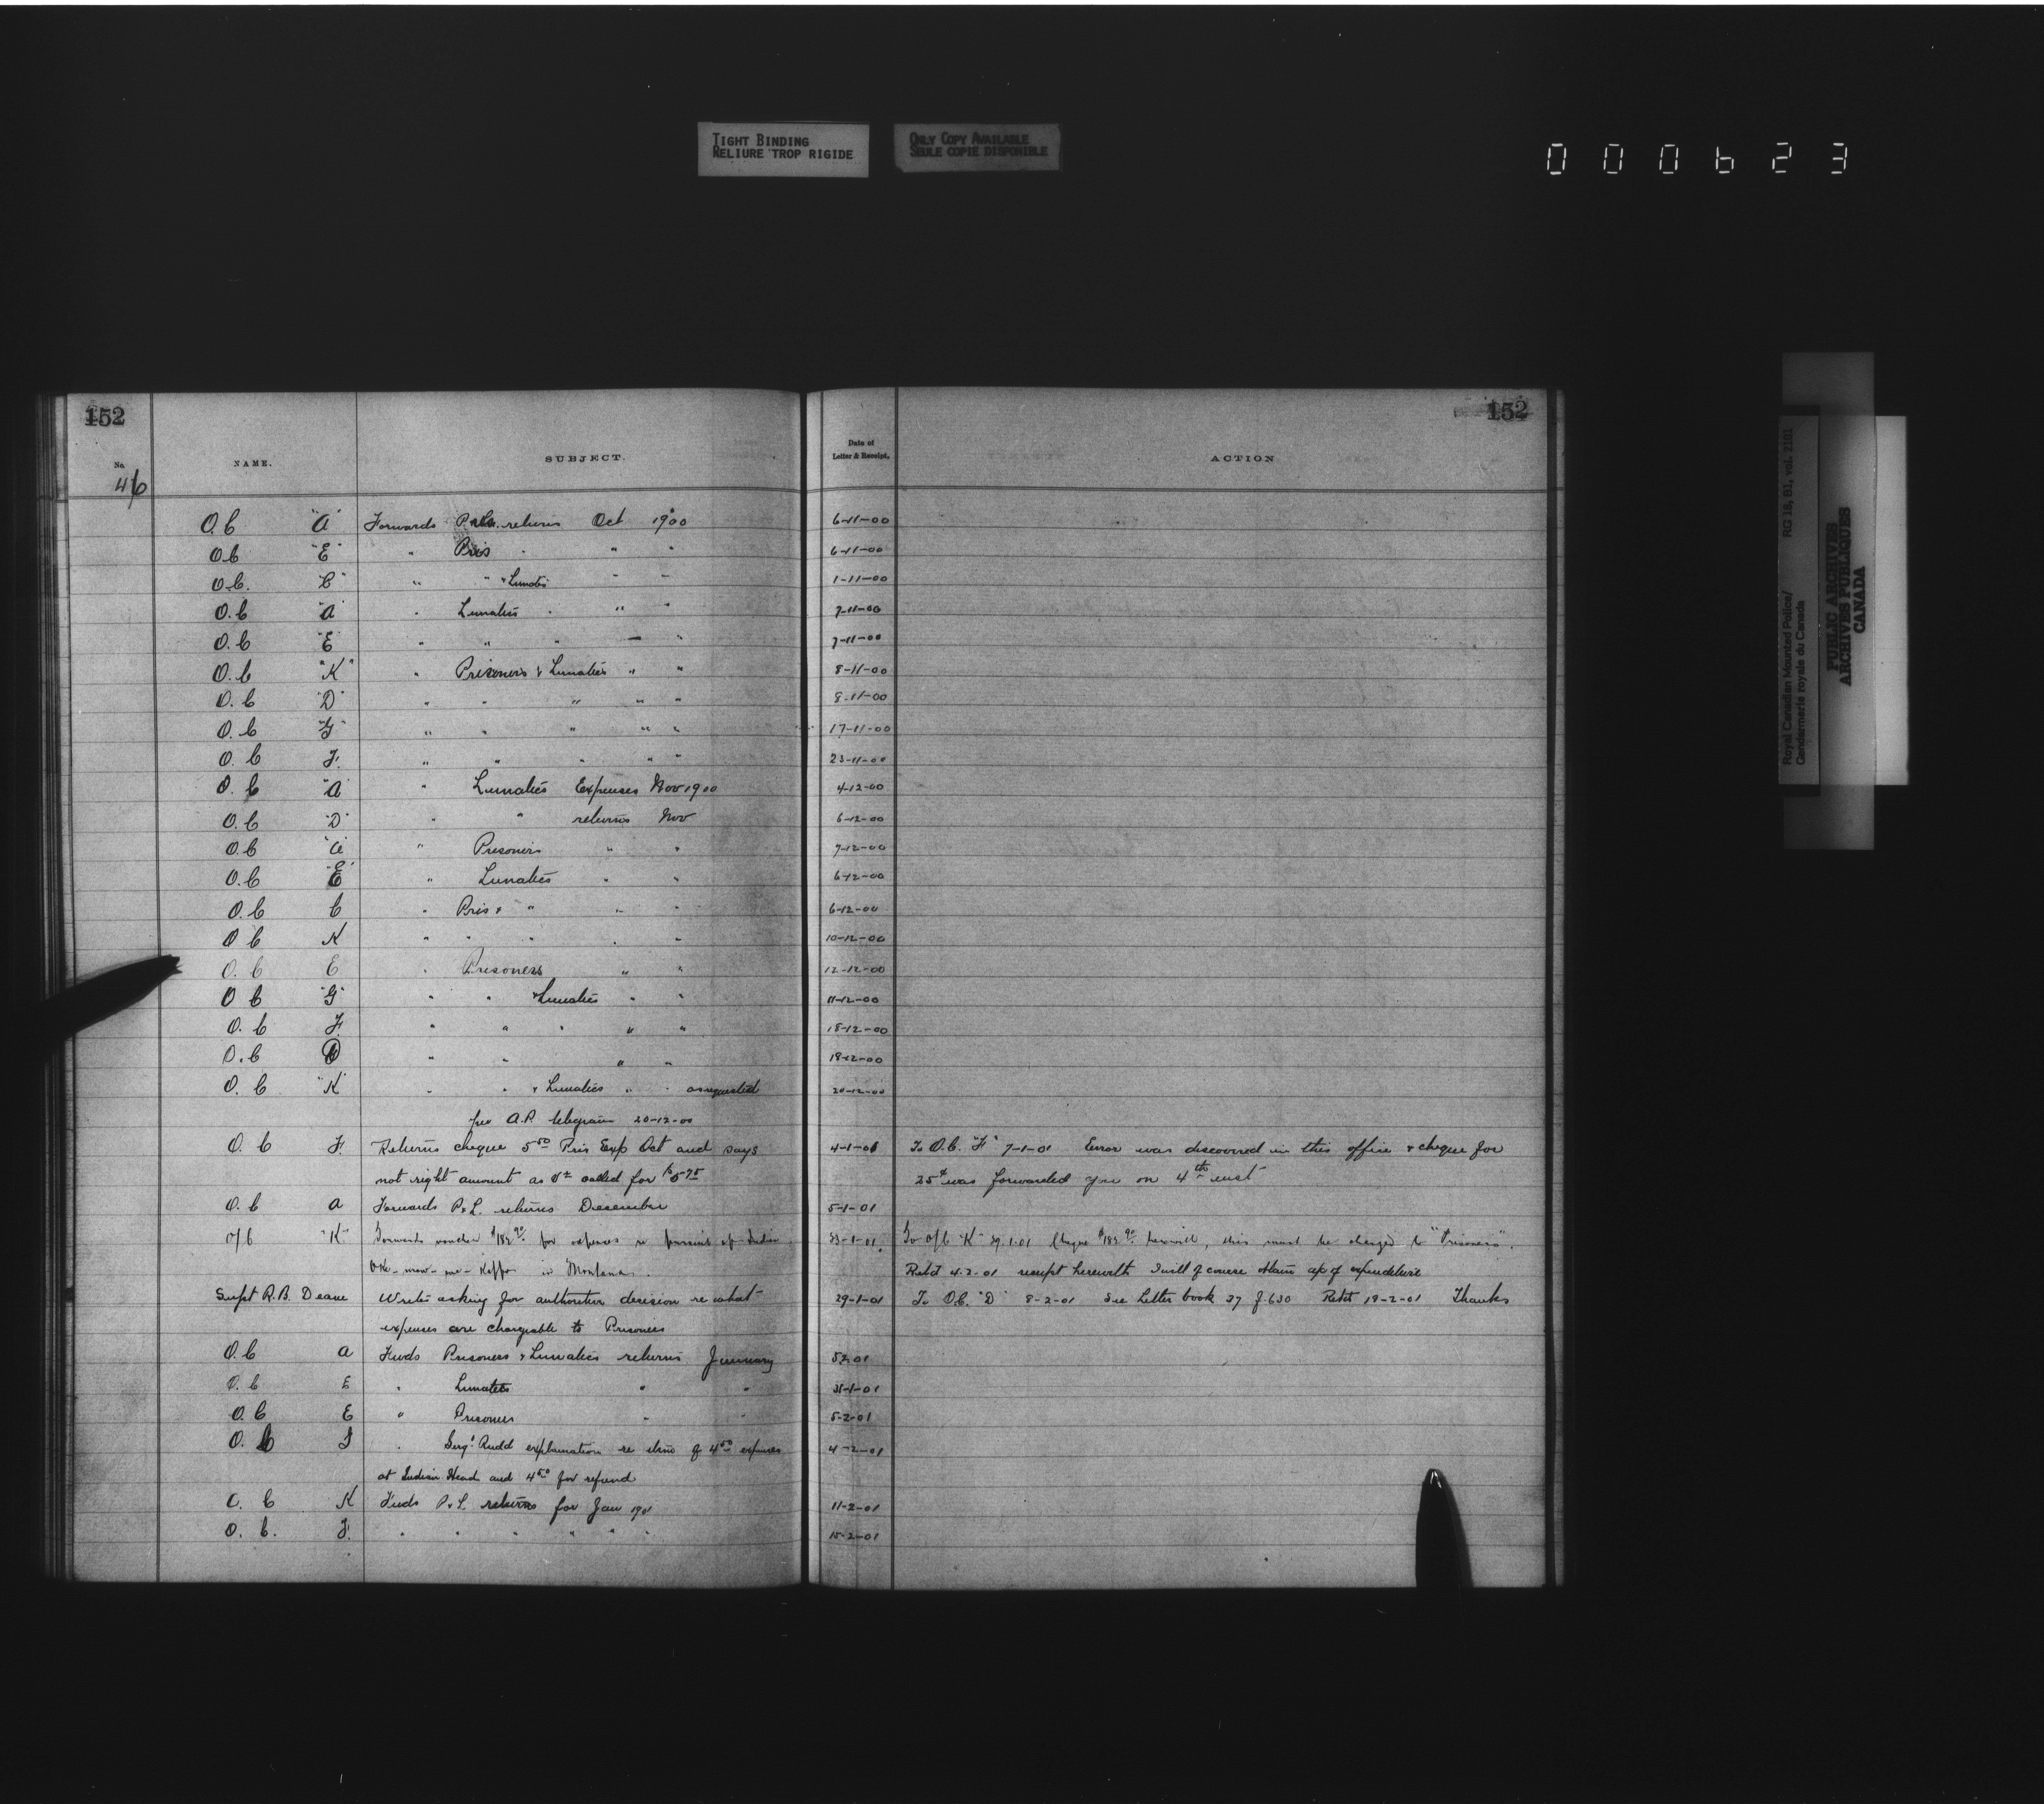 TIGHT BINDING
RELIURE TROP RIGIDE
ONLY COPY AVAILABLE
SEULE COPIE DISPONIBLE
000623
152
152
No. NAME. SUBJECT. Date of Letter & Receipt. ACTION
46
O.C "A" Forwards returns Oct 1900 6-11-00
O.C "E" " Pris " " " 6-11-00
O.C. "C" " " & Lunatic " " 1-11-00
O.C "A" " Lunatics " " " 7-11-00
O.C "E" " " " " " 7-11-00
O.C "K" " Prisoners & Lunatics " " 8-11-00
O.C "D" " " " " " 8-11-00
O.C "G" " " " " " 17-11-00
O.C F. " " " " " 23-11-00
O.C "A" " Lunatics Expenses Nov 1900 4-12-00
O.C "D" " " returns Nov 6-12-00
O.C "A" " Prisoners " " 7-12-00
O.C "E" " Lunatics " " 6-12-00
O.C C " Pris & " " " 6-12-00
O C K " " " " " 10-12-00
O.C E " Prisoners " " 12-12-00
O C "G" " " & Lunatics " " 11-12-00
O.C F. " " " " " 18-12-00
O.C D " " " " 18-12-00
O.C "K" " " & Lunatics " " as requested 20-12-00
per A.P. telegram 20-12-00
O.C F. Returns cheque 5 50 Pris Exp Oct and says 4-1-01 To O.C. "F" 7-1-01 Error was discovered in this office & cheque for
not right amount as called for $5 75 25¢ was forwarded you on 4th inst
O.C A Forwards P & L. returns December 5-1-01
O/C "K" Forwards voucher for expenses re pursuit of Indian 23-1-01. To O/C "K" 29.1.01 Cheque herewith, this must be charged to "Prisoners".
in Montana. Retd 4-2-01 receipt herewith I will of course obtain of expenditure
Supt R.B. Deane Writes asking for authoritive decision re what 29-1-01 To O.C. "D" 8-2-01 See Letter book 37 f. 630 Retd 18-2-01 Thanks
expenses are chargeable to Prisoners
O.C A Fwds Prisoners & Lunatics returns January 5 2 01
O.C E " Lunatics " " 31-1-01
O.C E " Prisoners " " 5-2-01
O.C " Sergt. Rudd explanation re item of 4 50 expenses 4-2-01
at Indian Head and 4 50 for refund
O.C K Fwds P & L. returns for Jan 1901 11-2-01
O.C. F. " " " " " " 15-2-01
Royal Canadian Mounted Police/ RG 18, B1, vol. 2101
Gendarmerie royale du Canada
PUBLIC ARCHIVES
ARCHIVES PUBLIQUES
CANADA